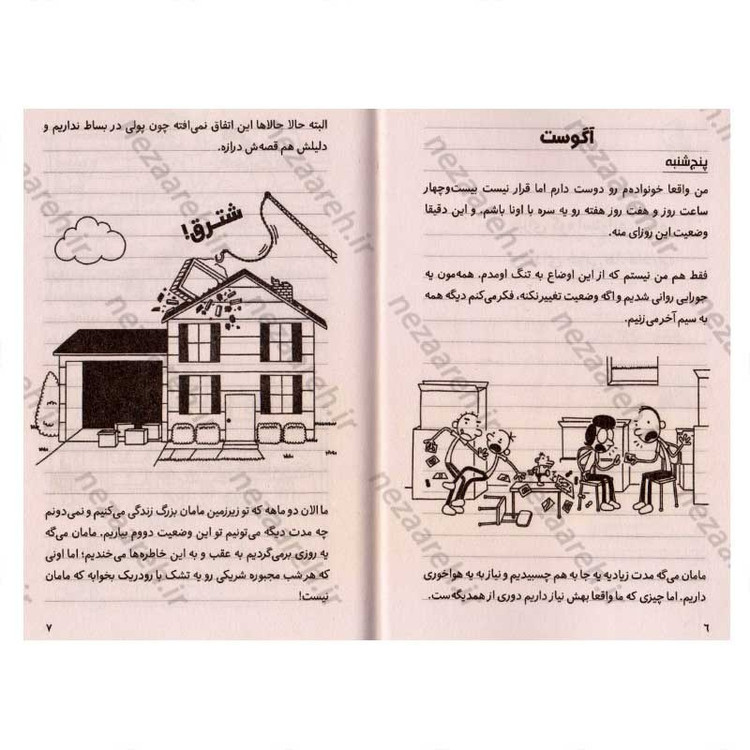 آگوست
پنج‌شنبه
من واقعا خونواده‌م رو دوست دارم اما قرار نیست بیست‌وچهار
ساعت روز و هفت روز هفته رو یه سره با اونا باشم. و این دقیقا
وضعیت این روزای منه.
فقط هم من نیستم که از این اوضاع به تنگ اومدم. همه‌مون یه
جورایی روانی شدیم و اگه وضعیت تغییر نکنه، فکر می‌کنم دیگه همه
به سیم آخر می‌زنیم.
مامان می‌گه مدت زیادیه یه جا به هم چسبیدیم و نیاز به یه هواخوری
داریم. اما چیزی که ما واقعا بهش نیاز داریم دوری از همدیگه‌ست.
۶
البته حالا حالاها این اتفاق نمی‌افته چون پولی در بساط نداریم و
دلیلش هم قصه‌ش درازه.
شترق!
ما الان دو ماهه که تو زیرزمین مامان بزرگ زندگی می‌کنیم و نمی‌دونم
چه مدت دیگه می‌تونیم تو این وضعیت دووم بیاریم. مامان می‌گه
یه روزی برمی‌گردیم به عقب و به این خاطره‌ها می‌خندیم؛ اما اونی
که هر شب مجبوره شریکی رو یه تشک با رودریک بخوابه که مامان
نیست!
۷
nezaareh.ir
nezaareh.ir
nezaareh.ir
nezaareh.ir
nezaareh.ir
nezaareh.ir